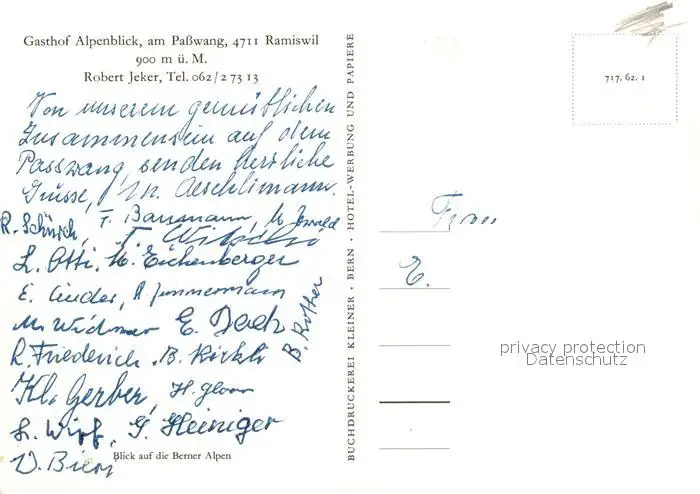 Gasthof Alpenblick, am Paßwang, 4711 Ramiswil
900 m ü. M.
Robert Jeker, Tel. 062/2 73 13
Von unserem gemütlichen
Zusammensein auf dem
Passwang, senden herzliche
Grüsse, M. Aeschlimann.
R. F. Bassmann, M. Oswald
L. Otti. M. Eichenberger
E. A. Zimmermann
M. Widmer E. Dach B. Rother
R. Friederich. B. Kirchli
Kl. Gerber, H. Gloor
L. Wipf, G. Heiniger
V. Bieri
Blick auf die Berner Alpen
BUCHDRUCKEREI KLEINER · BERN · HOTEL-WERBUNG UND PAPIERE
717. 62. 1
Frau
E.
privacy protection
Datenschutz